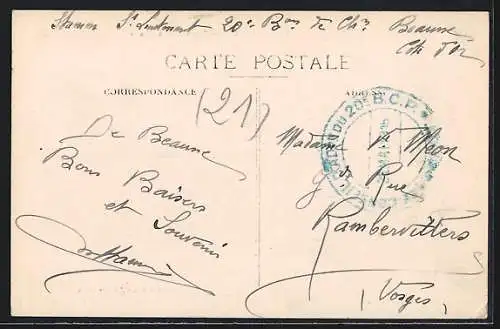 Stamen Ss Lieutenant 20e Bon de Chrs Beaune
Cote d'Or
CARTE POSTALE
CORRESPONDANCE
(21)
De Beaune
Bons Baisers
et Souvenir
ADRESSE
DU 20e B.C.P.
Madame Ve
Gde Rue
Rambervillers
Vosges